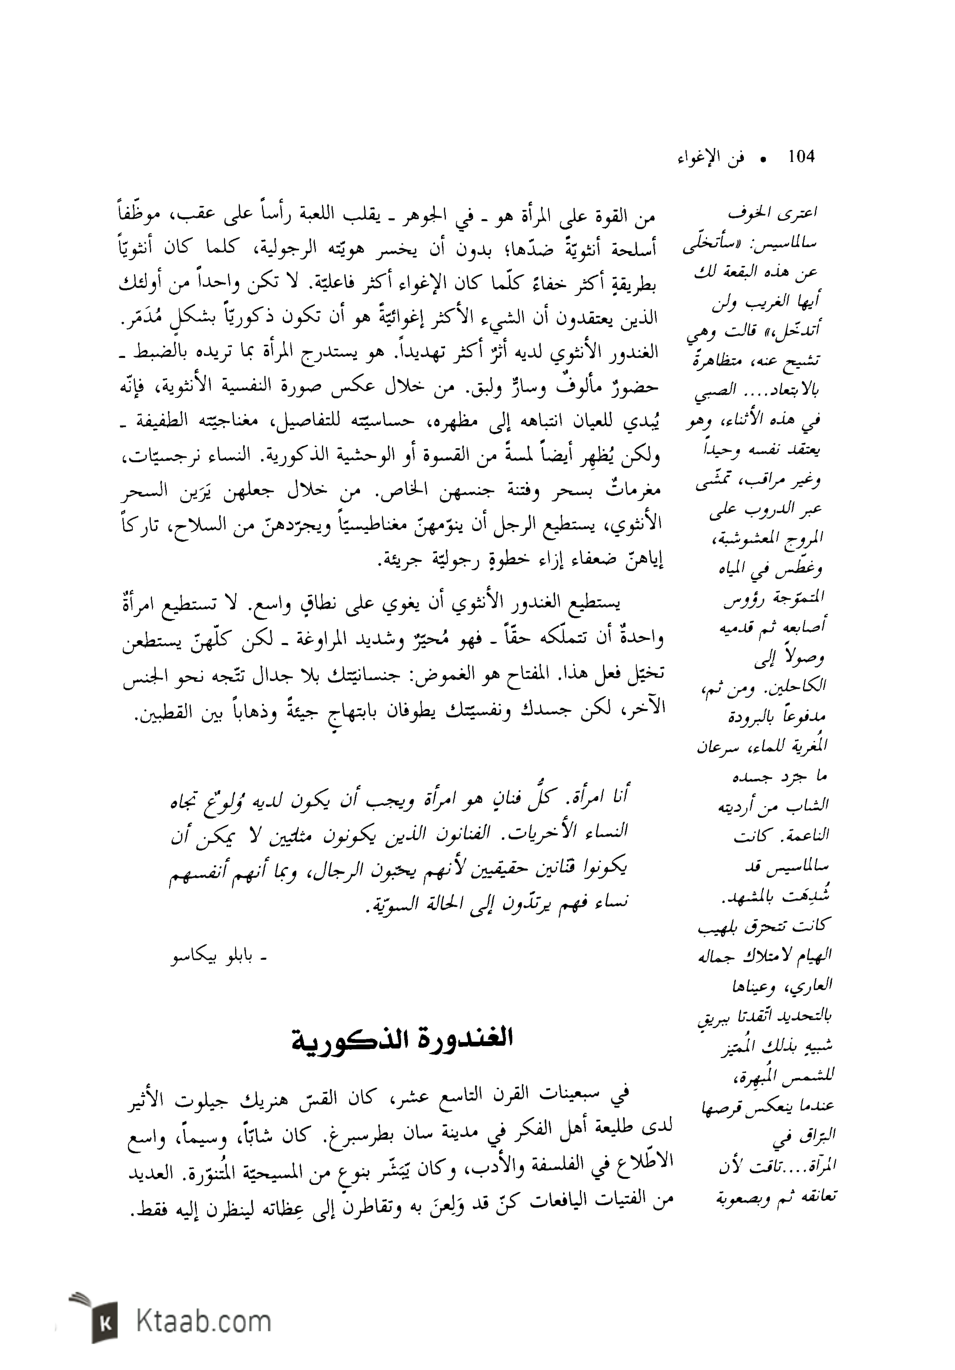 104 • فن الإغواء
من القوة على المرأة هو ـ في الجوهر ـ يقلب اللعبة رأساً على عقب، موظّفاً
أسلحة أنثويّةً ضدّها؛ بدون أن يخسر هويّته الرجولية، كلما كان أنثويّاً
بطريقةٍ أكثر خفاءً كلّما كان الإغواء أكثر فاعليّة. لا تكن واحداً من أولئك
الذين يعتقدون أن الشيء الأكثر إغوائيّةً هو أن تكون ذكوريّاً بشكلٍ مُدَمّر.
الغندور الأنثوي لديه أثرٌ أكثر تهديداً. هو يستدرج المرأة بما تريده بالضبط ـ
حضورٌ مألوفٌ وسارٌّ ولبق. من خلال عكس صورة النفسية الأنثوية، فإنّه
يُبدي للعيان انتباهه إلى مظهره، حساسيّته للتفاصيل، مغناجيّته الطفيفة ـ
ولكن يُظهِر أيضاً لمسةً من القسوة أو الوحشية الذكورية. النساء نرجسيّات،
مغرماتٌ بسحر وفتنة جنسهن الخاص. من خلال جعلهن يَرَين السحر
الأنثوي، يستطيع الرجل أن ينوّمهنّ مغناطيسيّاً ويجرّدهنّ من السلاح، تاركاً
إياهنّ ضعفاء إزاء خطوةٍ رجوليّة جريئة.
يستطيع الغندور الأنثوي أن يغوي على نطاقٍ واسع. لا تستطيع امرأةٌ
واحدةٌ أن تتملّكه حقّاً ـ فهو مُحيّرٌ وشديد المراوغة ـ لكن كلّهنّ يستطعن
تخيّل فعل هذا. المفتاح هو الغموض: جنسانيّتك بلا جدال تتّجه نحو الجنس
الآخر، لكن جسدك ونفسيّتك يطوفان بابتهاجٍ جيئةً وذهاباً بين القطبين.
أنا امرأة. كلُّ فنانٍ هو امرأة ويجب أن يكون لديه وُلوعٌ تجاه
النساء الأخريات. الفنانون الذين يكونون مثليّين لا يمكن أن
يكونوا فنّانين حقيقيين لأنهم يحبّون الرجال، وبما أنهم أنفسهم
نساء فهم يرتدّون إلى الحالة السويّة.
ـ بابلو بيكاسو
الغندورة الذكورية
في سبعينات القرن التاسع عشر، كان القسّ هنريك جيلوت الأثير
لدى طليعة أهل الفكر في مدينة سان بطرسبرغ. كان شابّاً، وسيماً، واسع
الاطّلاع في الفلسفة والأدب، وكان يّبَشّر بنوعٍ من المسيحيّة المُتنوّرة. العديد
من الفتيات اليافعات كنّ قد وَلِعنَ به وتقاطرن إلى عِظاته لينظرن إليه فقط.
اعترى الخوف
سالماسيس: «سأتخلّى
عن هذه البقعة لك
أيها الغريب ولن
أتدخّل،» قالت وهي
تشيح عنه، متظاهرةً
بالابتعاد.... الصبي
في هذه الأثناء، وهو
يعتقد نفسه وحيداً
وغير مراقب، تمشّى
عبر الدروب على
المروج المعشوشبة،
وغطّس في المياه
المتموّجة رؤوس
أصابعه ثم قدميه
وصولاً إلى
الكاحلين. ومن ثم،
مدفوعاً بالبرودة
المُغرية للماء، سرعان
ما جرّد جسده
الشاب من أرديته
الناعمة. كانت
سالماسيس قد
شُدِهَت بالمشهد.
كانت تتحرّق بلهيب
الهيام لامتلاك جماله
العاري، وعيناها
بالتحديد اتّقدتا ببريقٍ
شبيهٍ بذلك المُميّز
للشمس المُبهِرة،
عندما ينعكس قرصها
البرّاق في
المرآة....تاقت لأن
تعانقه ثم وبصعوبة
Ktaab.com